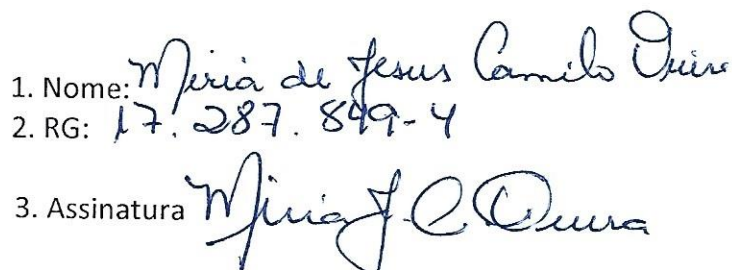 1. Nome: Miria de Jesus Camilo Vieira
2. RG: 17.287.849-4
3. Assinatura Miria J. C. Vieira